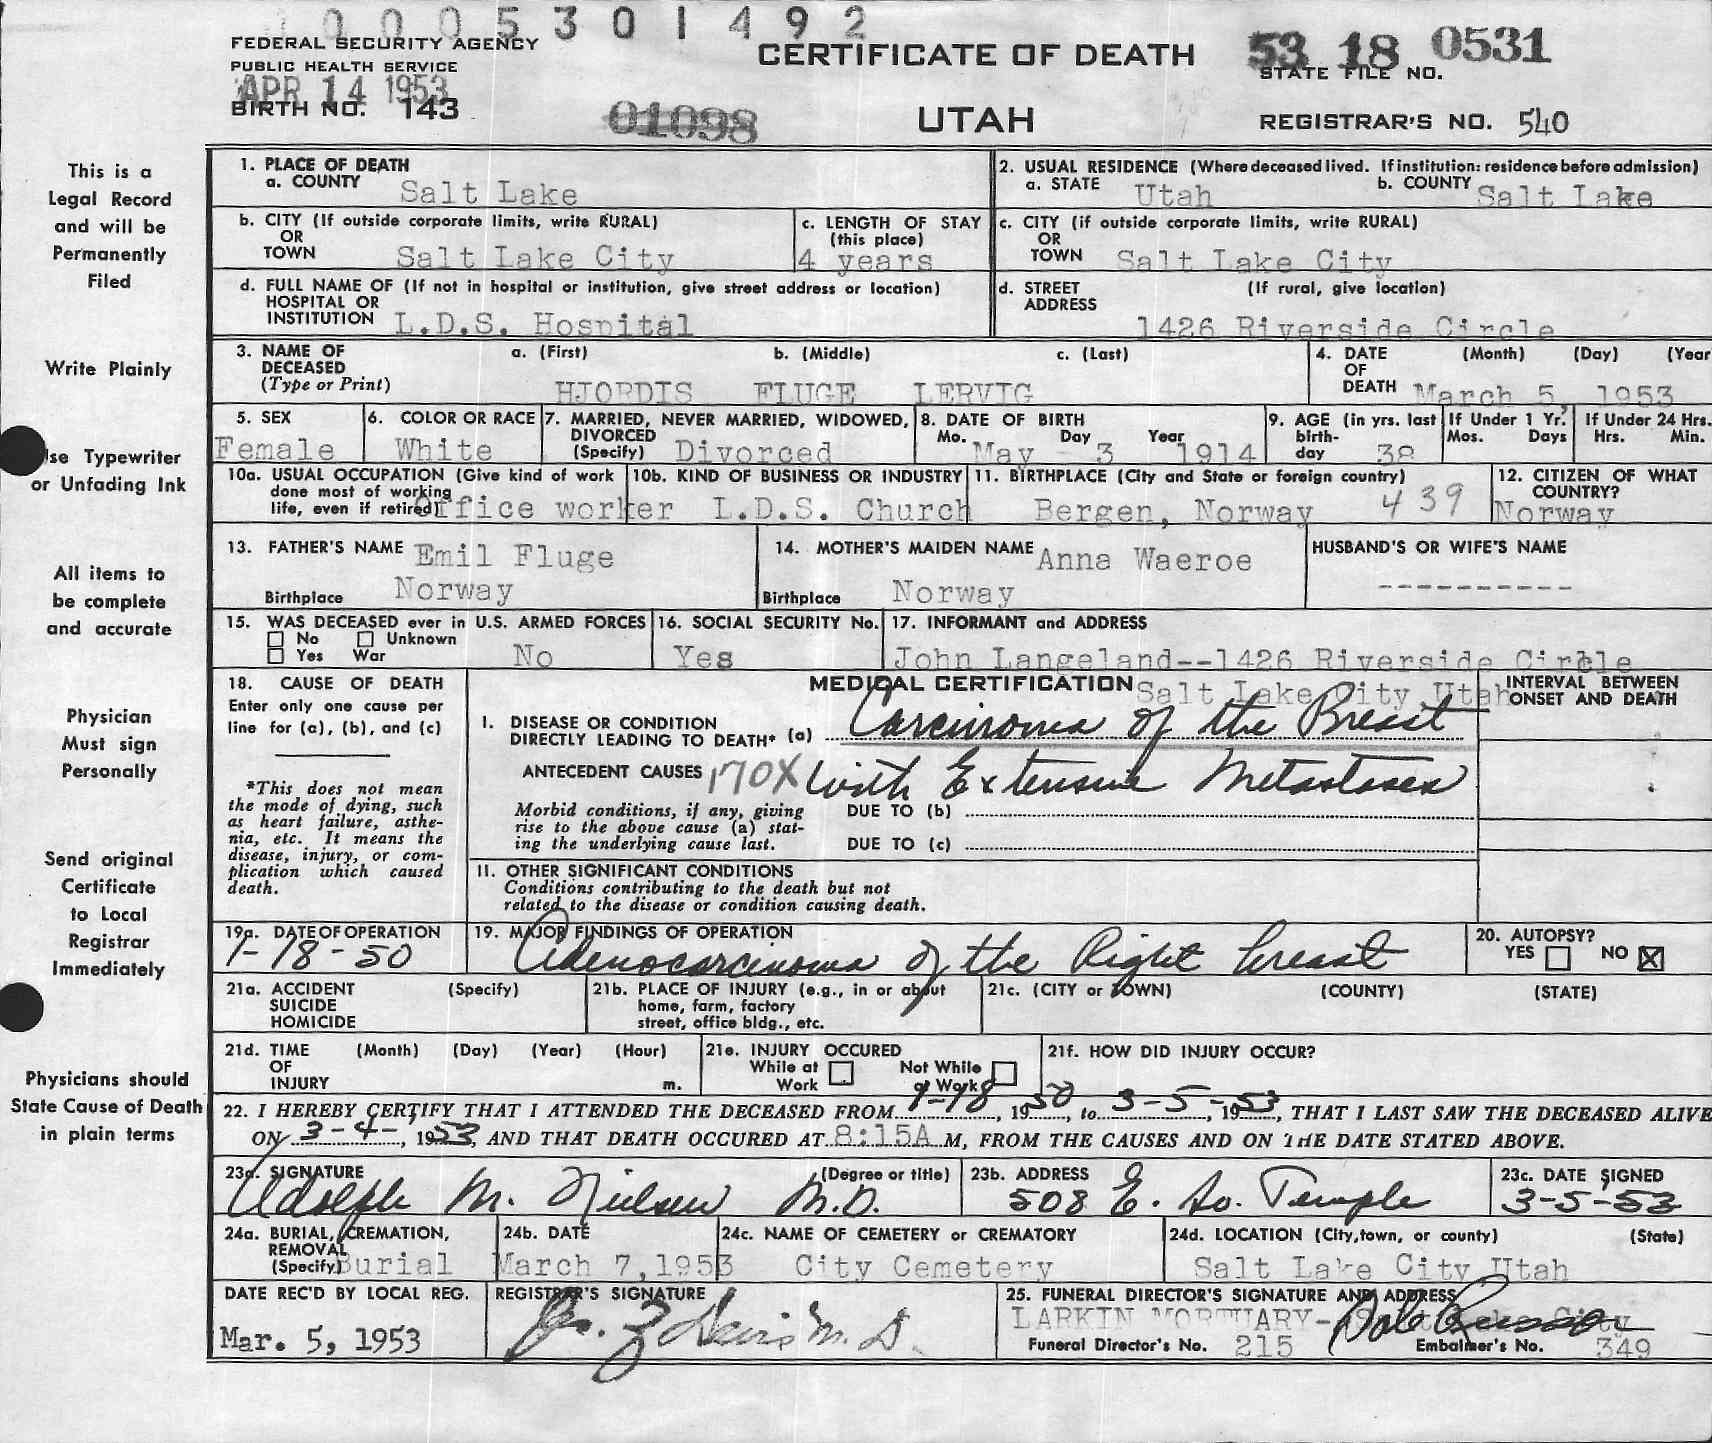 0005301492
FEDERAL SECURITY AGENCY
PUBLIC HEALTH SERVICE
APR 14 1953
BIRTH NO. 143
01098
CERTIFICATE OF DEATH
UTAH
53 18 0531
STATE FILE NO.
REGISTRAR'S NO. 540
This is a
Legal Record
and will be
Permanently
Filed
Write Plainly
Use Typewriter
or Unfading Ink
All items to
be complete
and accurate
Physician
Must sign
Personally
Send original
Certificate
to Local
Registrar
Immediately
Physicians should
State Cause of Death
in plain terms
1. PLACE OF DEATH
a. COUNTY Salt Lake
2. USUAL RESIDENCE (Where deceased lived. If institution: residence before admission)
a. STATE Utah b. COUNTY Salt Lake
b. CITY (If outside corporate limits, write RURAL)
OR
TOWN Salt Lake City
c. LENGTH OF STAY
(this place)
4 years
c. CITY (if outside corporate limits, write RURAL)
OR
TOWN Salt Lake City
d. FULL NAME OF (If not in hospital or institution, give street address or location)
HOSPITAL OR
INSTITUTION L.D.S. Hospital
d. STREET (If rural, give location)
ADDRESS
1426 Riverside Circle
3. NAME OF a. (First) b. (Middle) c. (Last)
DECEASED
(Type or Print) HJORDIS FLUGE LERVIG
4. DATE (Month) (Day) (Year
OF
DEATH March 5, 1953
5. SEX
Female
6. COLOR OR RACE
White
7. MARRIED, NEVER MARRIED, WIDOWED,
DIVORCED
(Specify) Divorced
8. DATE OF BIRTH
Mo. Day Year
May 3 1914
9. AGE (in yrs. last
birth-
day 38
If Under 1 Yr.
Mos. Days
If Under 24 Hrs.
Hrs. Min.
10a. USUAL OCCUPATION (Give kind of work
done most of working
life, even if retired) Office worker
10b. KIND OF BUSINESS OR INDUSTRY
L.D.S. Church
11. BIRTHPLACE (City and State or foreign country)
Bergen, Norway 439
12. CITIZEN OF WHAT
COUNTRY?
Norway
13. FATHER'S NAME Emil Fluge
Birthplace Norway
14. MOTHER'S MAIDEN NAME Anna Waeroe
Birthplace Norway
HUSBAND'S OR WIFE'S NAME
----------
15. WAS DECEASED ever in U.S. ARMED FORCES
No Unknown
Yes War No
16. SOCIAL SECURITY No.
Yes
17. INFORMANT and ADDRESS
John Langeland--1426 Riverside Circle
Salt Lake City, Utah
18. CAUSE OF DEATH
Enter only one cause per
line for (a), (b), and (c)
*This does not mean
the mode of dying, such
as heart failure, asthe-
nia, etc. It means the
disease, injury, or com-
plication which caused
death.
MEDICAL CERTIFICATION
INTERVAL BETWEEN
ONSET AND DEATH
I. DISEASE OR CONDITION
DIRECTLY LEADING TO DEATH* (a) Carcinoma of the Breast
ANTECEDENT CAUSES 170X with Extensive Metastases
Morbid conditions, if any, giving
rise to the above cause (a) stat-
ing the underlying cause last.
DUE TO (b)
DUE TO (c)
11. OTHER SIGNIFICANT CONDITIONS
Conditions contributing to the death but not
related to the disease or condition causing death.
19a. DATE OF OPERATION
1-18-50
19. MAJOR FINDINGS OF OPERATION
Adenocarcinoma of the Right breast
20. AUTOPSY?
YES NO X
21a. ACCIDENT (Specify)
SUICIDE
HOMICIDE
21b. PLACE OF INJURY (e.g., in or about
home, farm, factory
street, office bldg., etc.
21c. (CITY or TOWN) (COUNTY) (STATE)
21d. TIME (Month) (Day) (Year) (Hour)
OF
INJURY m.
21e. INJURY OCCURED
While at Work
Not While at Work
21f. HOW DID INJURY OCCUR?
22. I HEREBY CERTIFY THAT I ATTENDED THE DECEASED FROM 1-18, 1950, to 3-5-, 1953, THAT I LAST SAW THE DECEASED ALIVE
ON 3-4-, 1953, AND THAT DEATH OCCURED AT 8:15A M, FROM THE CAUSES AND ON THE DATE STATED ABOVE.
23a. SIGNATURE (Degree or title)
Adolph M. Nielsen M.D.
23b. ADDRESS
508 E. So. Temple
23c. DATE SIGNED
3-5-53
24a. BURIAL, CREMATION,
REMOVAL
(Specify) Burial
24b. DATE
March 7, 1953
24c. NAME OF CEMETERY or CREMATORY
City Cemetery
24d. LOCATION (City, town, or county) (State)
Salt Lake City Utah
DATE REC'D BY LOCAL REG.
Mar. 5, 1953
REGISTRAR'S SIGNATURE
Davis M.D.
25. FUNERAL DIRECTOR'S SIGNATURE AND ADDRESS
LARKIN MORTUARY- City
Funeral Director's No. 215
Embalmer's No. 349